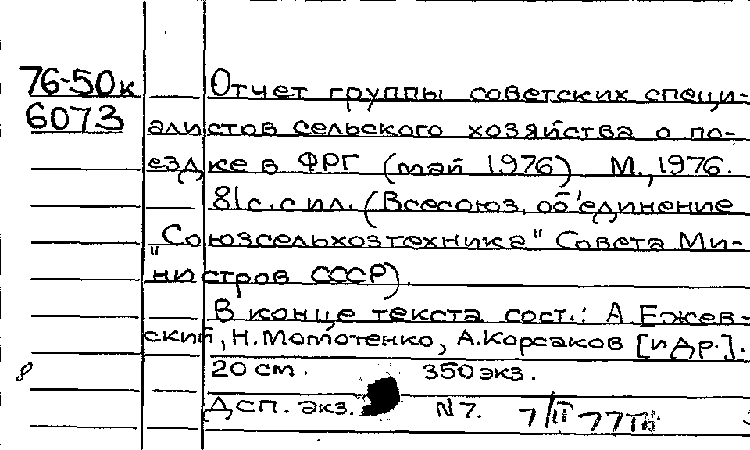 76-50к Отчет группы советских специ-
6073 алистов сельского хозяйства о по-
ездке в ФРГ (май 1976) М., 1976.
81с. с ил. (Всесоюз. об'единение
"Союзсельхозтехника" Совета Ми-
нистров СССР).
В конце текста сост.: А. Ежев-
ский, Н. Мототенко, А. Корсаков [и др.].
8 20 см. 350 экз.
Дсп. экз. N 7. 7/II 77